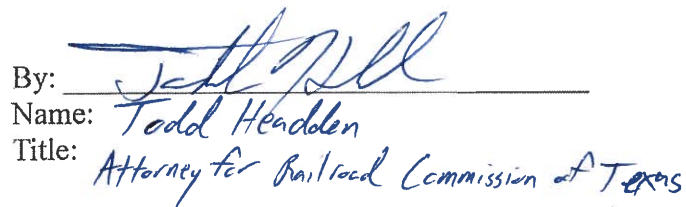 By:
Name: Todd Headden
Title:
Attorney for Railroad Commission of Texas